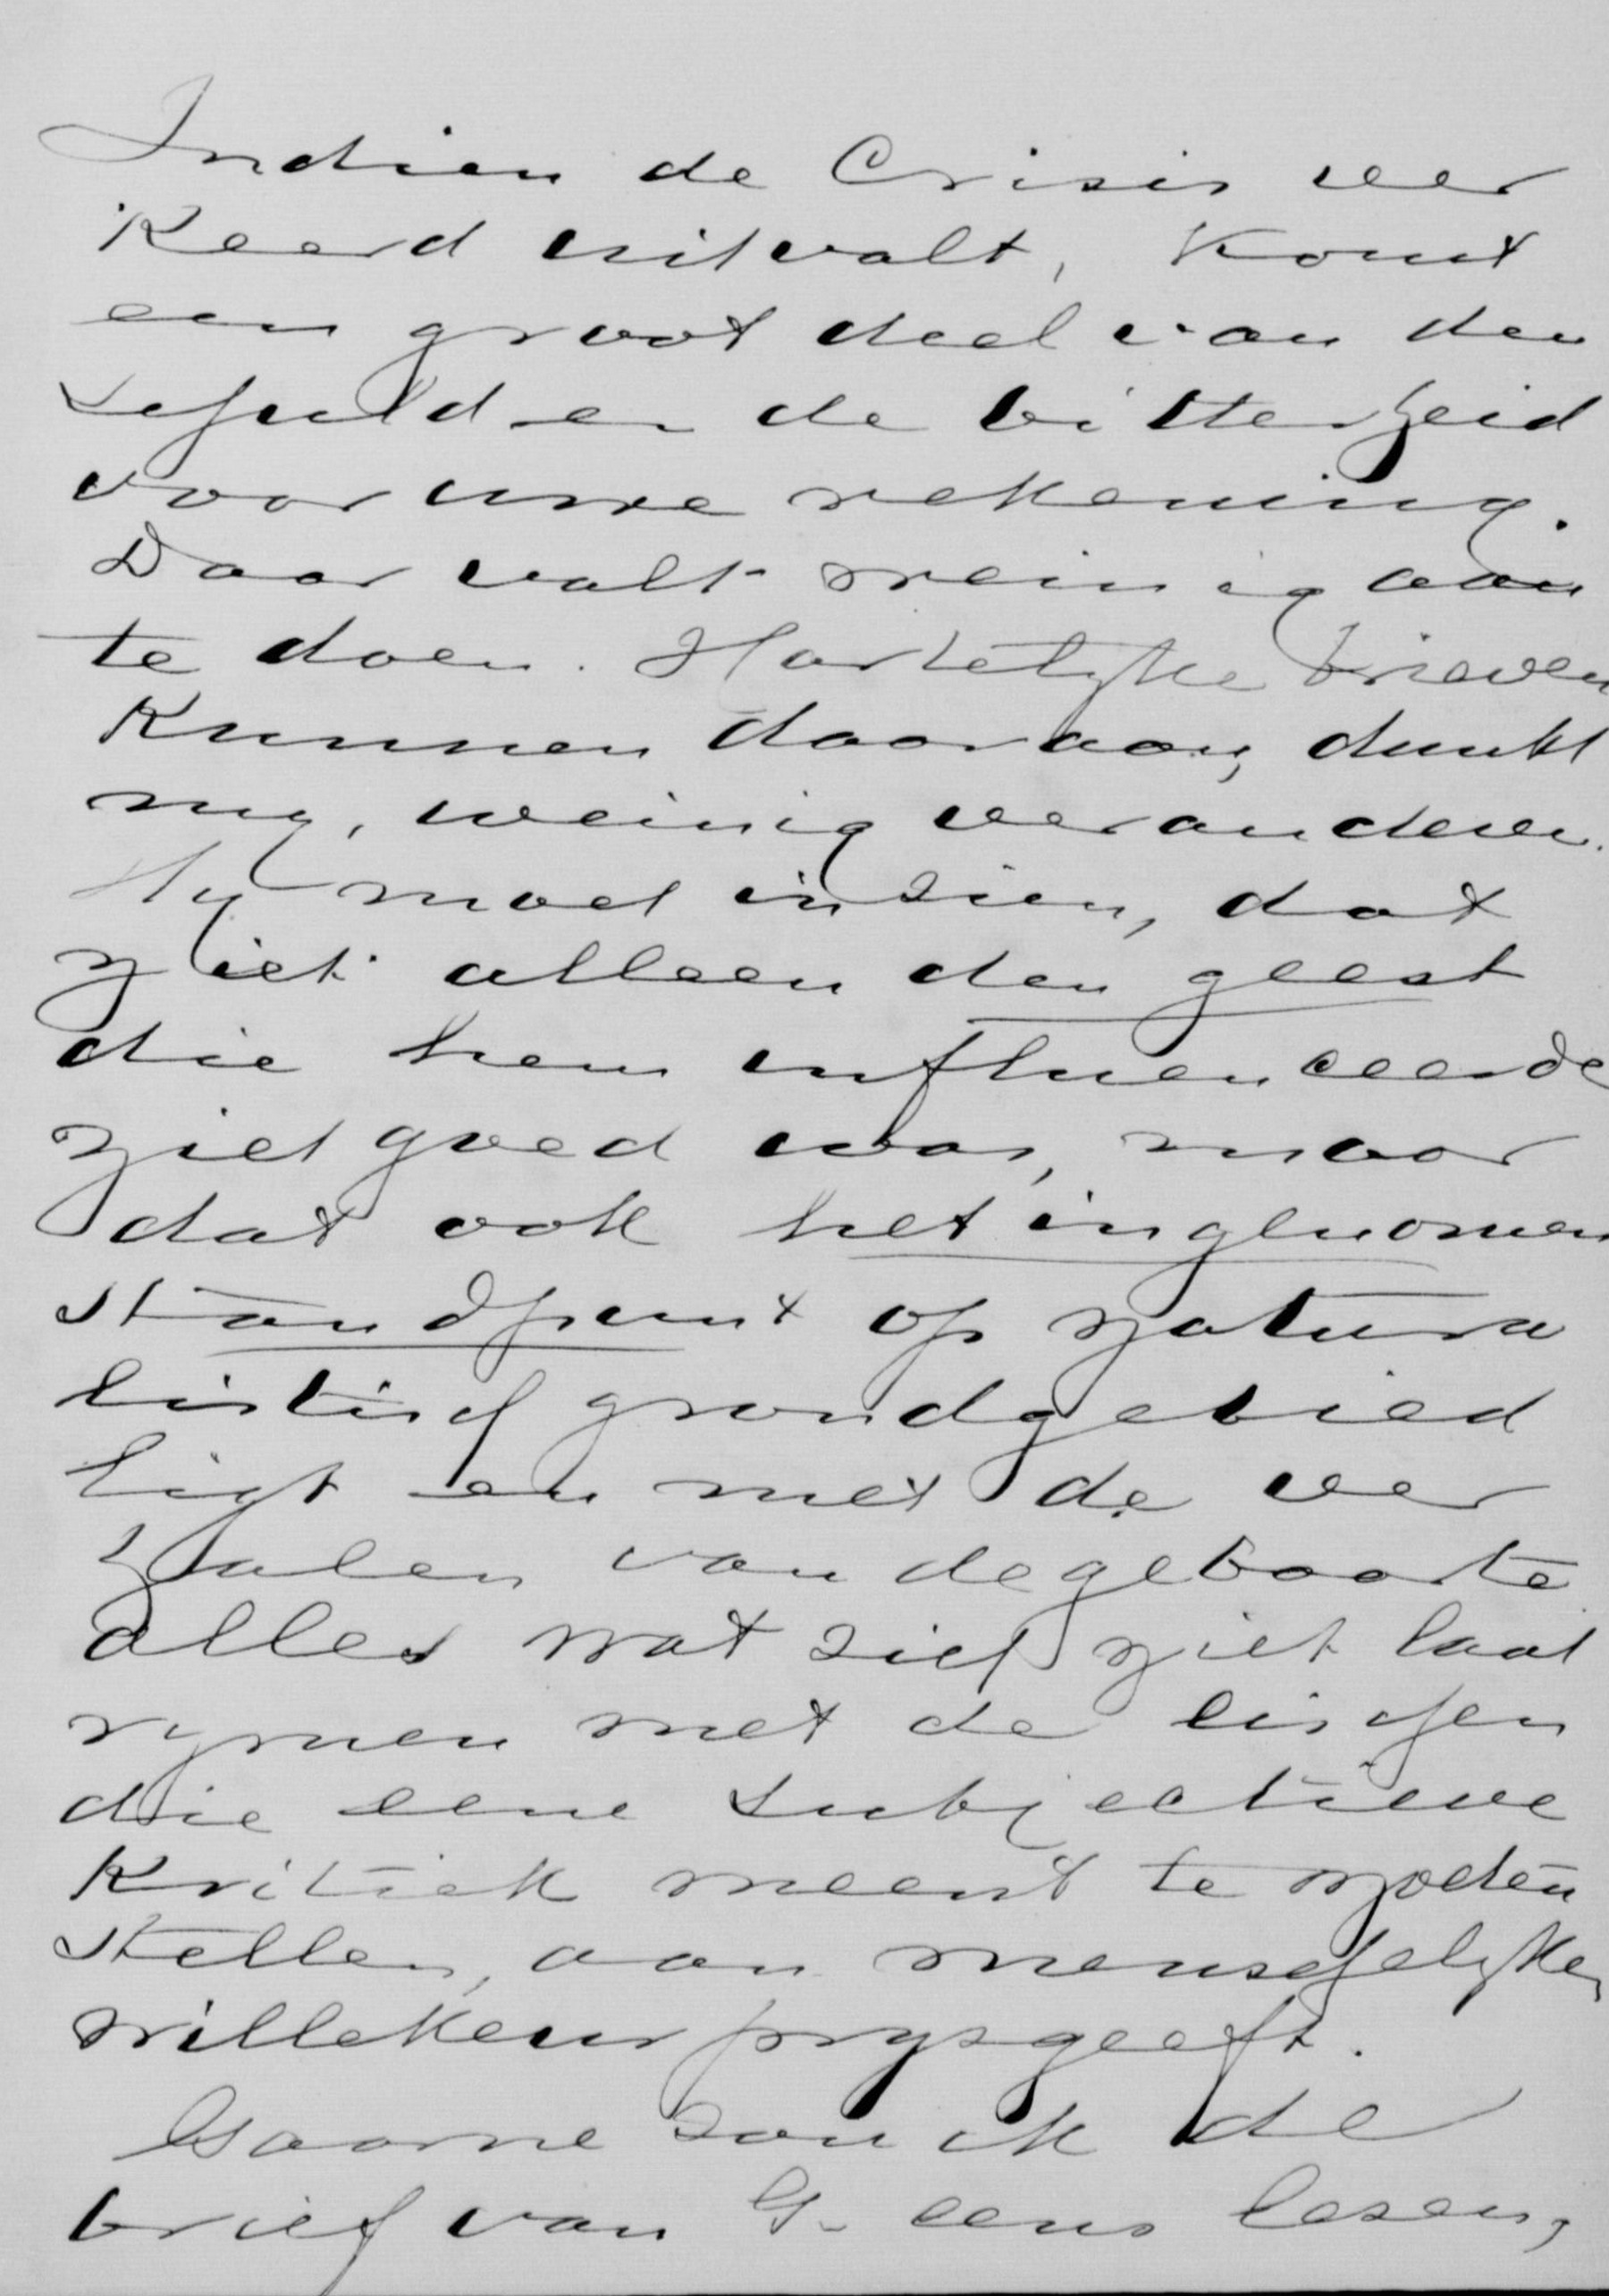 Indien de Crisis ver
keerd uitvalt, komt
een groot deel van den
schuld en de bitterheid
voor uwe rekening.
Daar valt weinig aan
te doen. Hartelyke brieven
kunnen daaraan, dunkt
my, weinig veranderen.
Hy moet inzien, dat
niet alleen den geest
die hem influenceerde
niet goed was, maar
dat ook het ingenomen
standpunt op natura
listisch grondgebied
ligt en met de ver
halen van de geboorte
alles wat zich niet laat
rymen met de eischen
die eene subjectieve
kritiek meent te moeten
stellen, aan menschelyke
willekeur prysgeeft.
Gaarne zou ik de
brief van G. eens lezen,